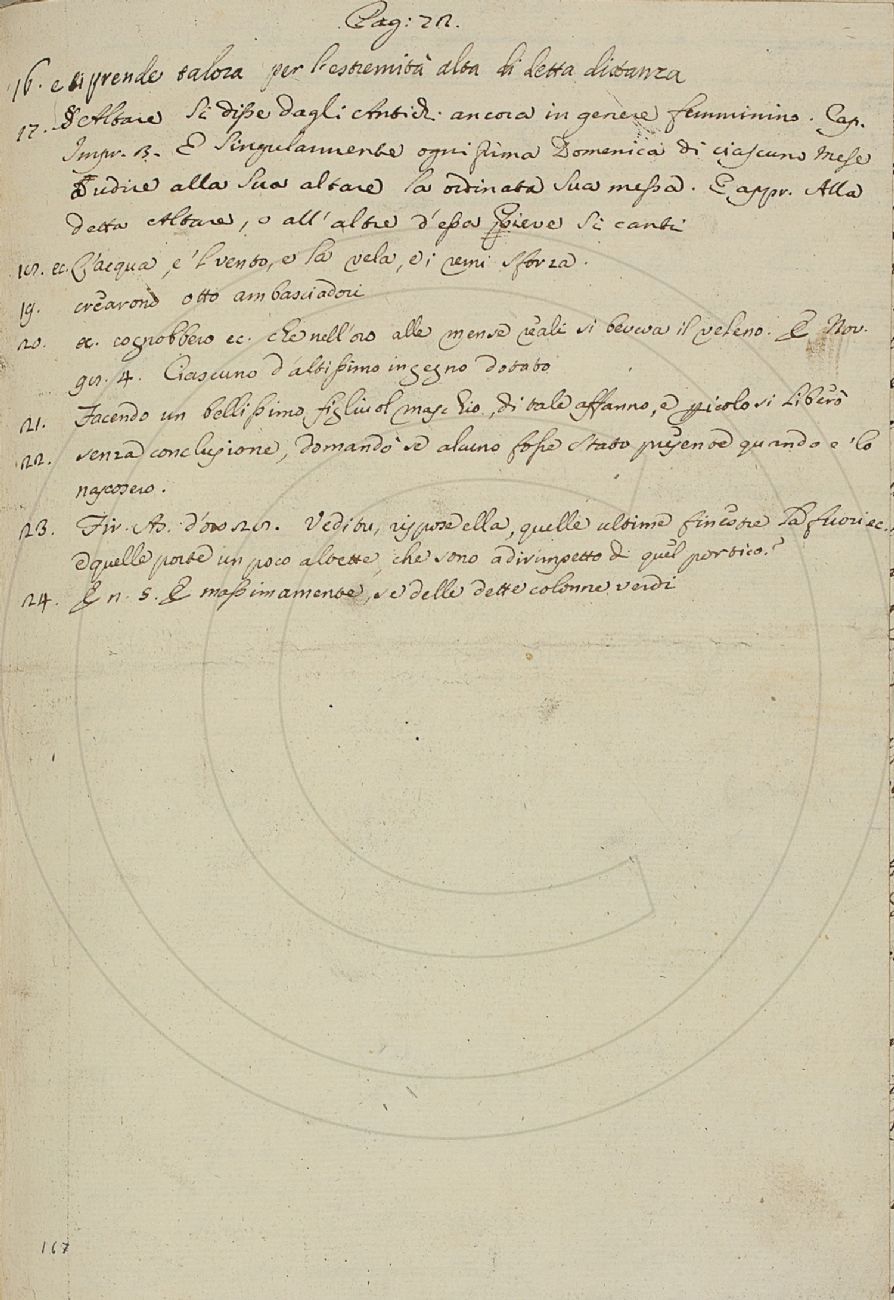 Pag: 22.
16. e si prende talora per l'estremità alta di detta distanza
17. § Altare si disse dagli Antichi ancora in genere femminino. Cap.
Impr. 3. E singularmente ogni prima Domenica di ciascuno mese
udire alla sua altare la ordinata sua messa. E appr. Alla
detta Altare, o all'altre d'essa Pieve si canti
18. ec. L'acqua, e 'l vento, e la vela, e i remi sforza.
19. crearono otto ambasciadori
20. ec. cognobbero ec. che nell'oro alle mense reali si beveva il veleno. E Nov.
98. 4. Ciascuno d'altissimo ingegno dotato
21. Facendo un bellissimo figliuol maschio, di tale affanno, e picolo si liberò
22. senza conclusione, domandò se alcuno fosse stato presente quando e 'lo
nascosero.
23. Fir. As. d'oro 28. Vedi tu, rispose ella, quelle ultime finestre là fuori ec.,
e quelle porte un poco alte che sono a dirimpetto di quel portico?
24. E n. 5. E massimamente, se delle dette colonne verdi
167